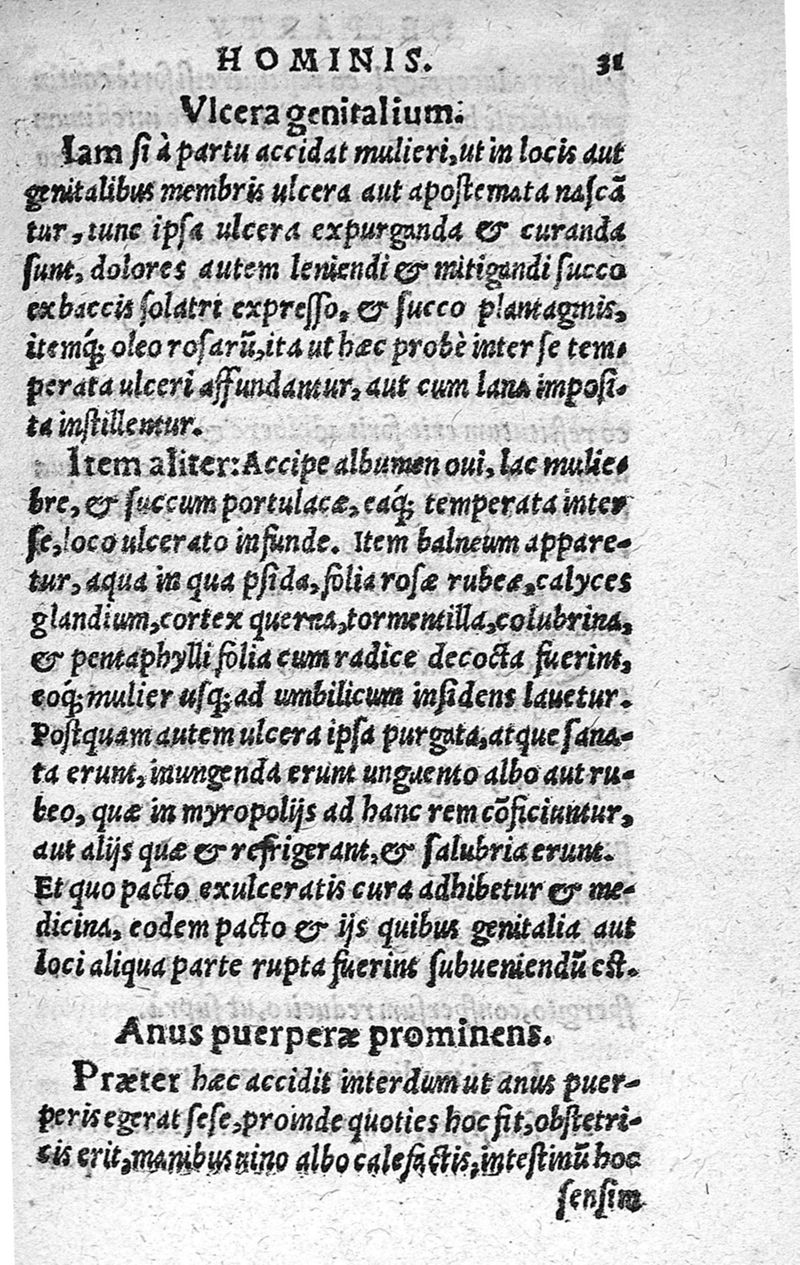 HOMINIS. 31
Vlcera genitalium.
Iam si à partu accidat mulieri, ut in locis aut
genitalibus membris ulcera aut apostemata nascã
tur, tunc ipsa ulcera expurganda & curanda
sunt, dolores autem leniendi & mitigandi succo
ex baccis solatri expresso, & succo plantaginis,
itemq́; oleo rosarũ, ita ut hæc probè inter se tem-
perata ulceri affundantur, aut cum lana imposi-
ta instillentur.
Item aliter: Accipe albumen oui, lac mulie-
bre, & succum portulacæ, eaq́; temperata inter
se, loco ulcerato infunde. Item balneum appare-
tur, aqua in qua psida, folia rosæ rubeæ, calyces
glandium, cortex querna, tormentilla, colubrina,
& pentaphylli folia cum radice decocta fuerint,
eoq́; mulier usq; ad umbilicum insidens lauetur.
Postquam autem ulcera ipsa purgata, atque sana-
ta erunt, inungenda erunt unguento albo aut ru-
beo, quæ in myropolijs ad hanc rem cõficiuntur,
aut alijs quæ & refrigerant, & salubria erunt.
Et quo pacto exulceratis cura adhibetur & me-
dicina, eodem pacto & ijs quibus genitalia aut
loci aliqua parte rupta fuerint subueniendũ est.
Anus puerperæ prominens.
Præter hæc accidit interdum ut anus puer-
peris egerat sese, proinde quoties hoc fit, obstetri-
cis erit, manibus uino albo calefactis, intestinũ hoc
sensim